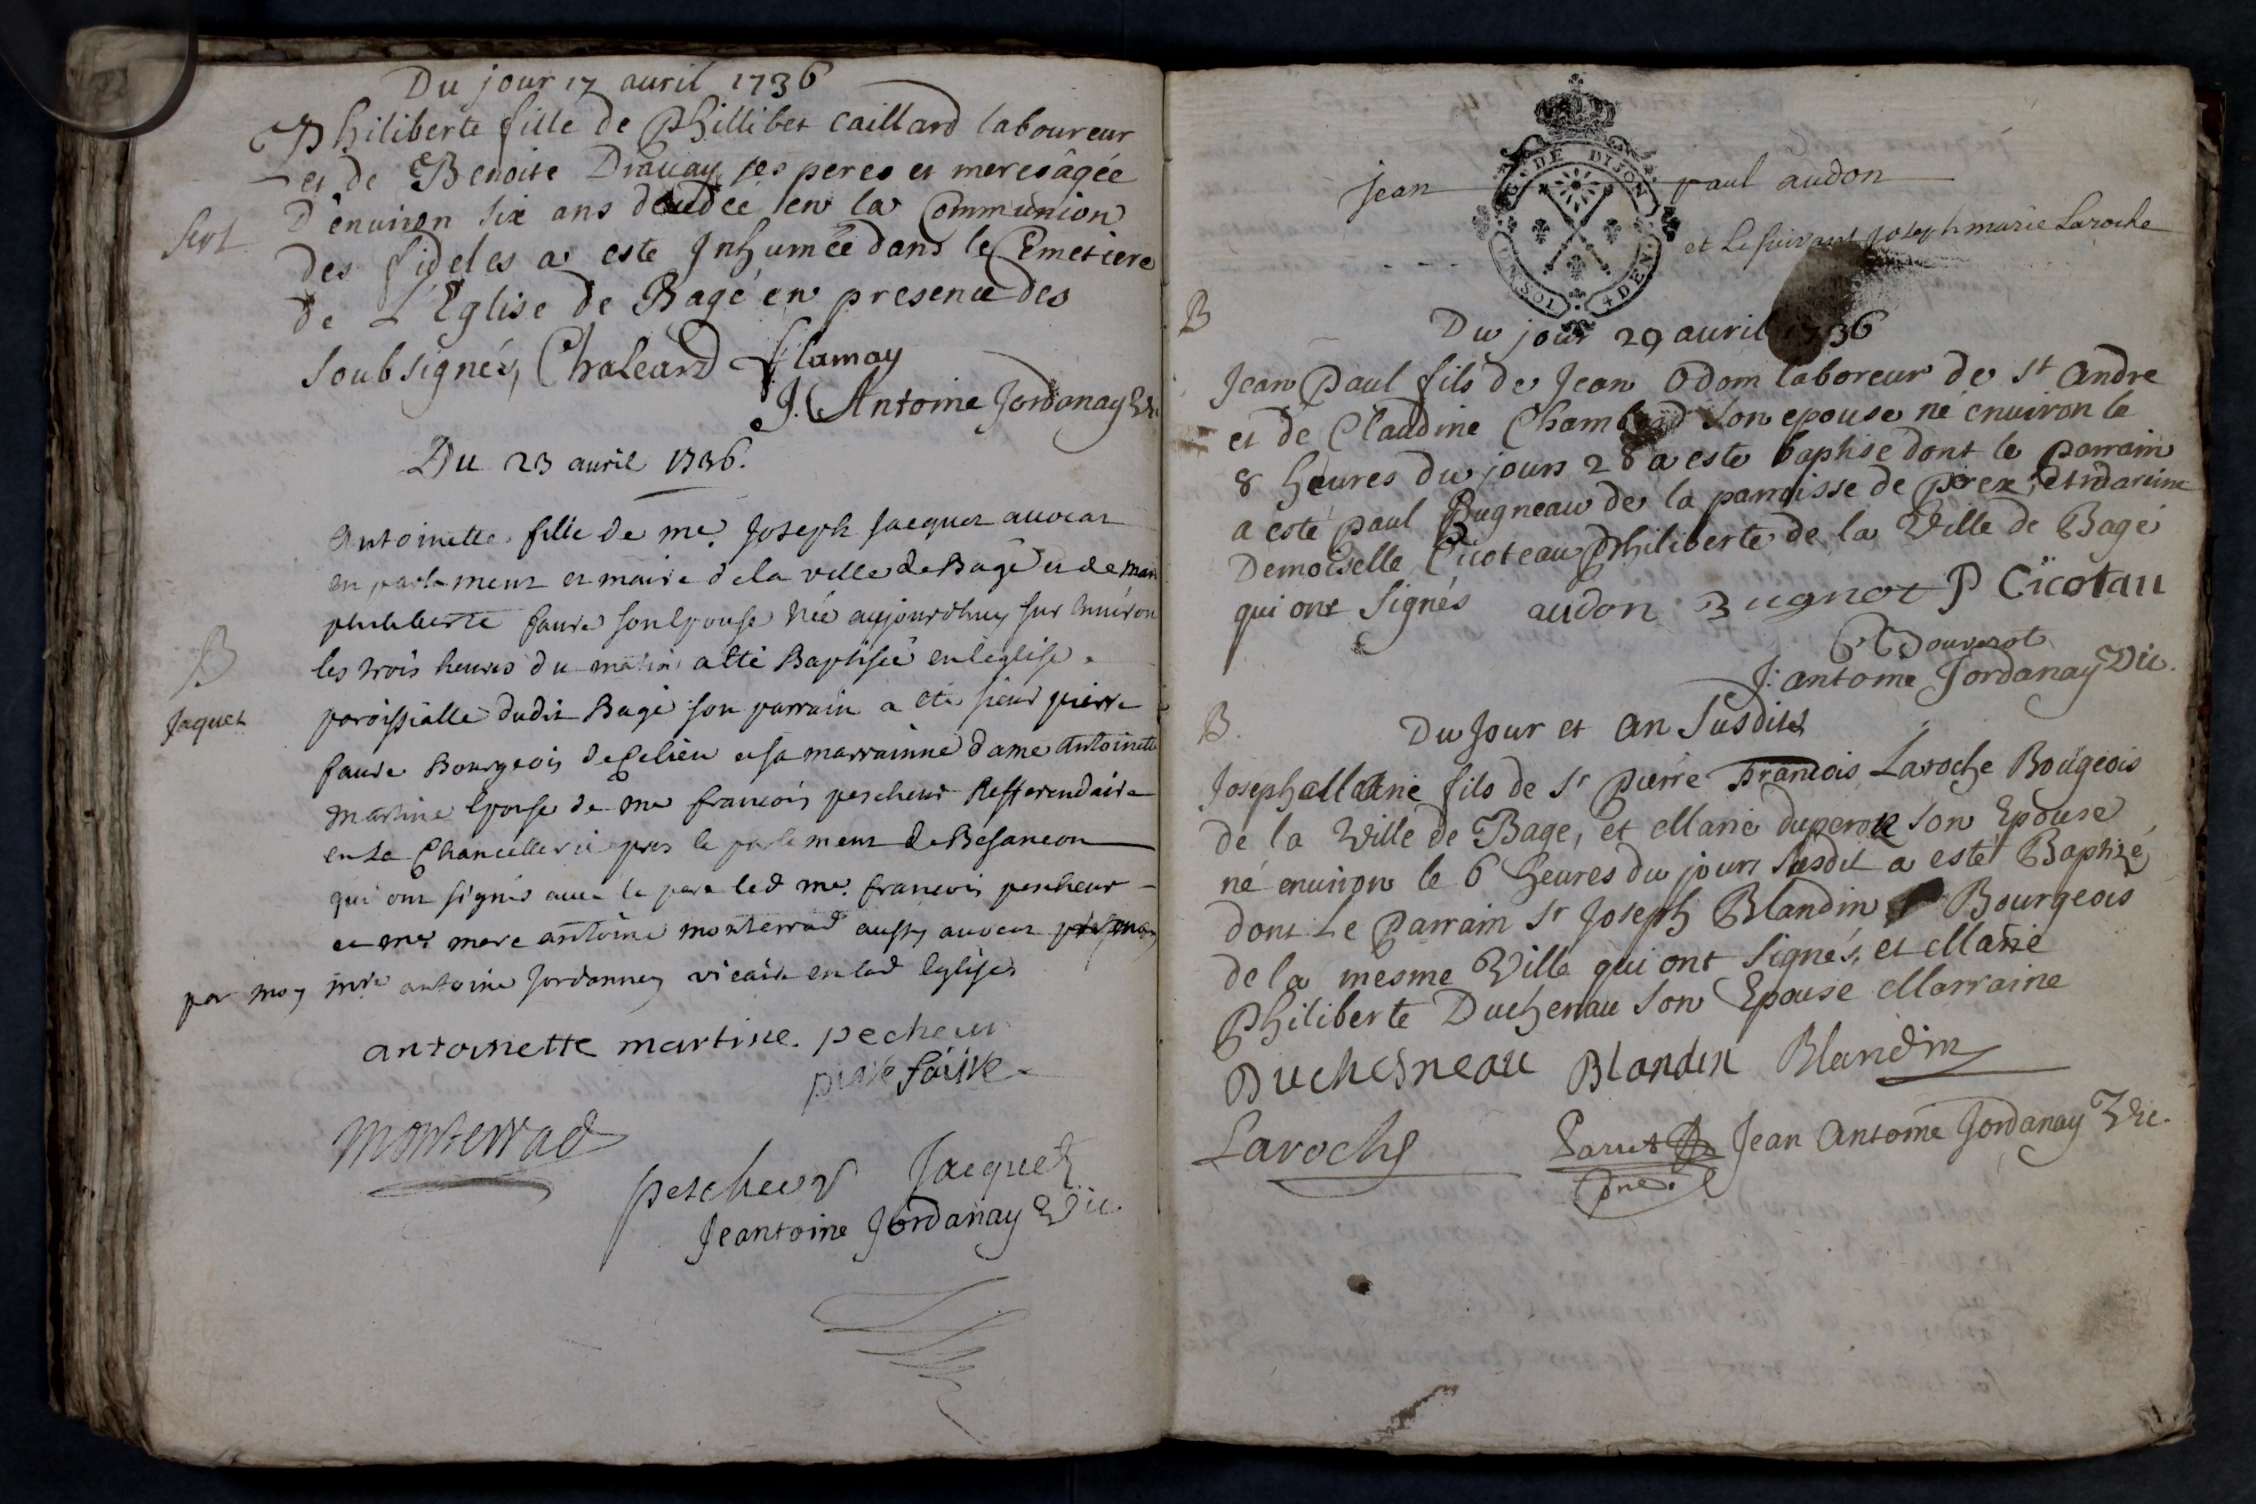 Du jour 17 auril 1736
Philiberte fille de Phillibet Caillard laboureur
et de Benoite Drauay ses peres et meres âgée
Sert
D'enuiron Six ans décedeé en la Communion
des fideles a este Inhumée dans le Cemetiere
de L'Eglise de Bagé en presence des
Soubsignés, Chaleard Flamay
J. Antoine Jordanay Vic
Du 23 auril 1736.
Antoinette fille de me. Joseph Jacquet auocat
en parlement et maire de la ville de Bagé et de marie
philiberte faure son Epouse Née aujourdhuy sur Enuiron
B
les trois heures du matin a été Baptisée en l'eglise
Jaquet
paroissialle dudit Bagé son parrain a été sieur pierre
faure Bourgeois de ce lieu et sa marrainne dame antoinette
martine Epouse de me francois pescheur Refferendaire
en La Chancellerie pres le parlement de Besancon
qui ont signés auec le pere led me. francois pescheur
et me marc antoine monterrad aussy auocat
par moy mre antoine Jordannay vicaire en lad Eglise
antoinette martine. pecheur
faure
Monterrad
pescheur Jacquet
Jeantoine Jordanay Vic.
DE DIJON
jean paul audon
et Le suiuant Joseph marie Laroche
B
Du jour 29 auril 1736
Jean Paul fils de Jean Odom laboreur de St Andre
et de Claudine Chambard son epouse né enuiron le
8 heures du jours 28 a este baptise dont le parrain
a esté paul Bugneau de la parroisse de perex, et maraine
Demoiselle Cicoteau Philiberte de la Ville de Bagé
qui ont Signés audon Bugnot P Cïcotau
J: antoine Jordanay Vic.
B.
Du Jour et an Susdites
Joseph Marie fils de Sr Pierre francois Laroche Bougeois
de la Ville de Bage, et Marie duperox son Epouse
né enuiron le 6 heures du jours susdit a esté Baptizé
dont Le Parrain Sr Joseph Blandin Bourgeois
de la mesme Ville qui ont Signés, et Marie
Philiberte Duchenau son Epouse Marraine
Duchesneau Blandin Blandin
Laroche Jean Antoine Jordanay Vic.